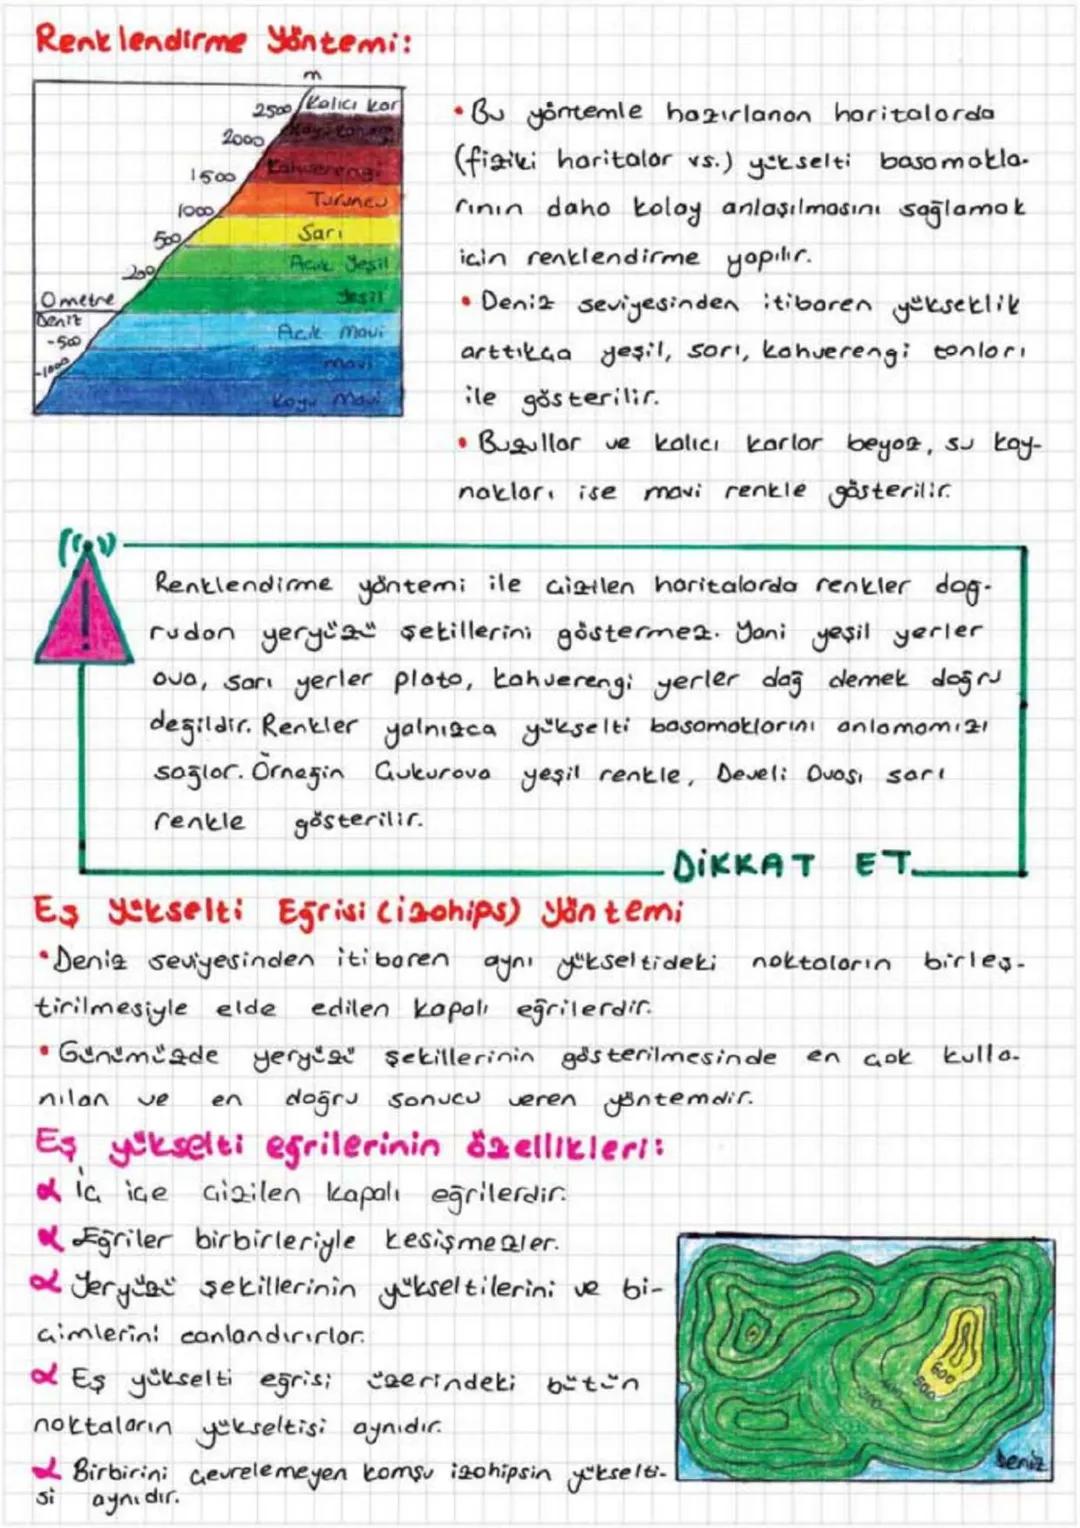 Renklendirme Yöntemi:
m
2500 Kalıcı kar
2000 Koyu Kahve
1500 Kahverengi
1000 Turuncu
500 Sarı
200 Açık Yeşil
0 metre Yeşil
Deniz
-500 Açık Mavi
-1000 mavi
Koyu Mavi
• Bu yöntemle hazırlanan haritalarda
(fiziki haritalar vs.) yükselti basamakla-
rının daha kolay anlaşılmasını sağlamak
için renklendirme yapılır.
• Deniz seviyesinden itibaren yükseklik
arttıkça yeşil, sarı, kahverengi tonları
ile gösterilir.
• Buzullar ve kalıcı karlar beyaz, su kay-
nakları ise mavi renkle gösterilir.
Renklendirme yöntemi ile çizilen haritalarda renkler doğ-
rudan yeryüzü şekillerini göstermez. Yani yeşil yerler
ova, sarı yerler plato, kahverengi yerler dağ demek doğru
değildir. Renkler yalnızca yükselti basamaklarını anlamamızı
sağlar. Örneğin Çukurova yeşil renkle, Develi Ovası sarı
renkle gösterilir.
DİKKAT ET
Eş Yükselti Eğrisi (izohips) Yöntemi
• Deniz seviyesinden itibaren aynı yükseltideki noktaların birleş-
tirilmesiyle elde edilen kapalı eğrilerdir.
• Günümüzde yeryüzü şekillerinin gösterilmesinde en çok kulla-
nılan ve en doğru sonucu veren yöntemdir.
Eş yükselti eğrilerinin özellikleri:
İç içe çizilen kapalı eğrilerdir.
Eğriler birbirleriyle kesişmezler.
Yeryüzü şekillerinin yükseltilerini ve bi-
çimlerini canlandırırlar.
Eş yükselti eğrisi üzerindeki bütün
noktaların yükseltisi aynıdır.
Birbirini çevrelemeyen komşu izohipsin yükselti-
si aynıdır.
600
500
400
300
Deniz